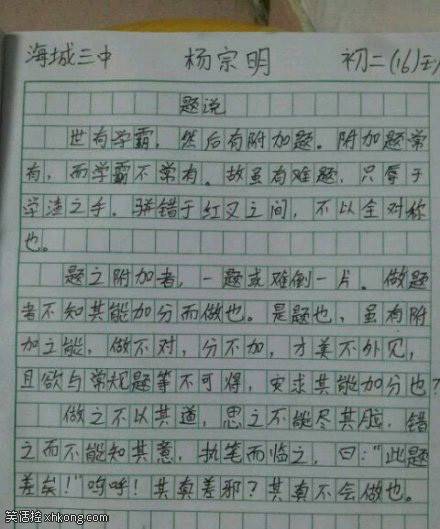 海城三中 杨宗明 初二(16)
题说
世有学霸，然后有附加题。附加题常
有，而学霸不常有。故虽有难题，只辱于
学渣之手。骈错于红叉之间，不以全对称
也。
题之附加者，一题或难倒一片。做题
者不知其能加分而做也。是题也，虽有附
加之能，做不对，分不加，才美不外见，
且欲与常规题等不可得，安求其能加分也?
做之不以其道，思之不能尽其脑，错
之而不能知其意，执笔而临之，曰："此题
差矣!"呜呼!其真差邪?其真不会做也。
笑话控 xhkong.com